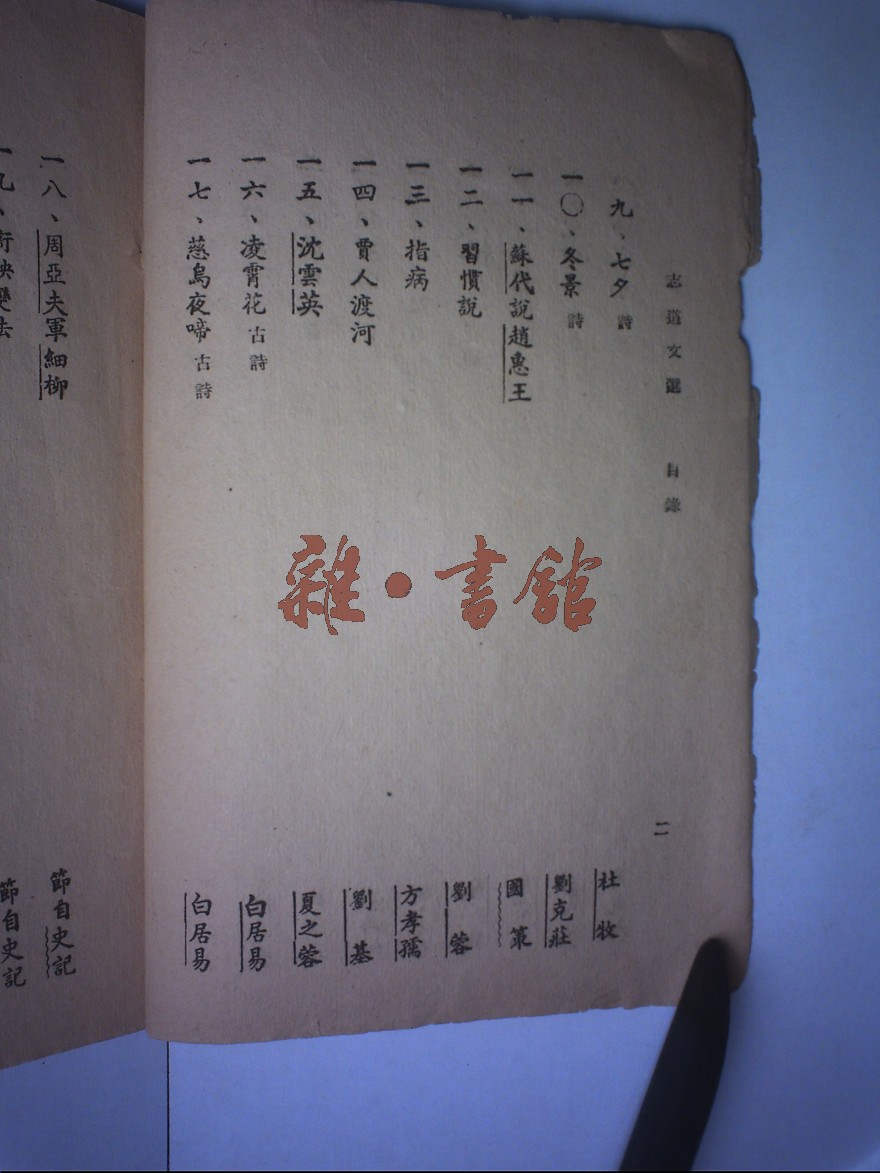 志道文選 目錄 二
九、七夕 詩 杜牧
一〇、冬景 詩 劉克莊
一一、蘇代說趙惠王 國策
一二、習慣說 劉蓉
一三、指病 方孝孺
一四、賈人渡河 劉基
一五、沈雲英 夏之蓉
一六、凌霄花 古詩 白居易
一七、慈烏夜啼 古詩 白居易
一八、周亞夫軍細柳 節自史記
一九、衛鞅變法 節自史記
雜·書館